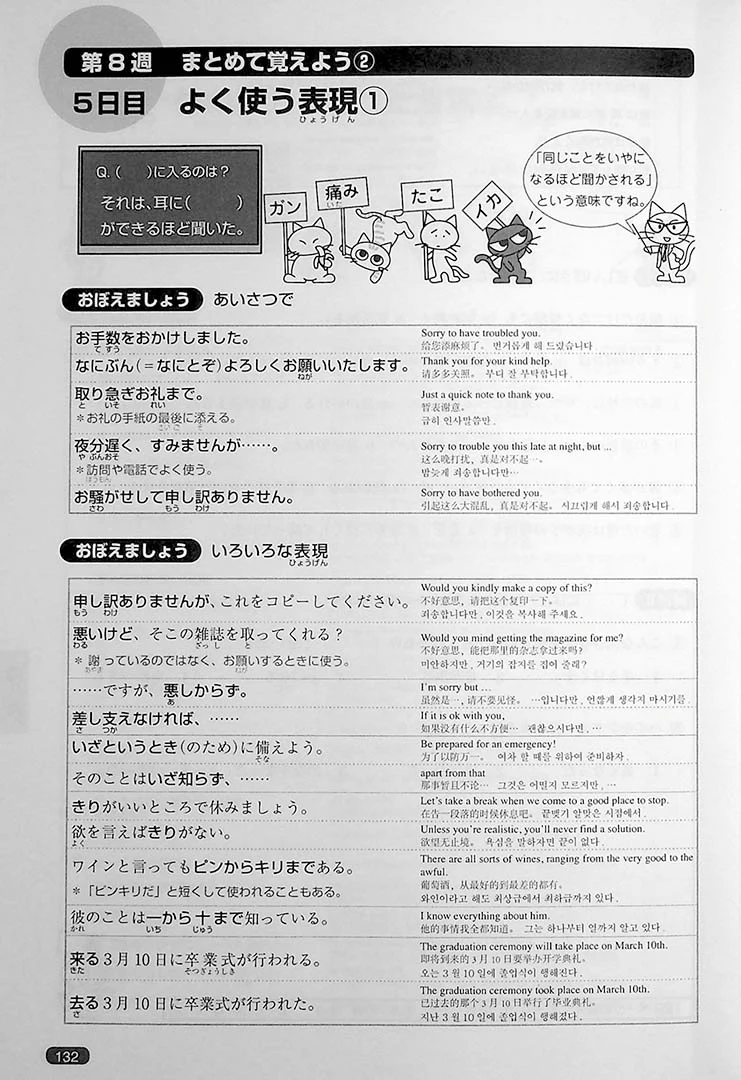 第8週 まとめて覚えよう②
5日目 よく使う表現①
ひょうげん
Q.( )に入るのは？
それは、耳に( )
ができるほど聞いた。
ガン
痛み
いた
たこ
イカ
「同じことをいやに
なるほど聞かされる」
という意味ですね。
おぼえましょう あいさつで
お手数をおかけしました。
てすう
Sorry to have troubled you.
给您添麻烦了。 번거롭게 해 드렸습니다.
なにぶん(＝なにとぞ)よろしくお願いいたします。
ねが
Thank you for your kind help.
请多多关照。 부디 잘 부탁합니다.
取り急ぎお礼まで。
と いそ れい
＊お礼の手紙の最後に添える。
さいご そ
Just a quick note to thank you.
暂表谢意。
급히 인사말씀만.
夜分遅く、すみませんが……。
やぶんおそ
＊訪問や電話でよく使う。
ほうもん
Sorry to trouble you this late at night, but ...
这么晚打扰，真是对不起…。
밤늦게 죄송합니다만…
お騒がせして申し訳ありません。
さわ もう わけ
Sorry to have bothered you.
引起这么大混乱，真是对不起。 시끄럽게 해서 죄송합니다.
おぼえましょう いろいろな表現
ひょうげん
申し訳ありませんが、これをコピーしてください。
もう わけ
Would you kindly make a copy of this?
不好意思，请把这个复印一下。
죄송합니다만, 이것을 복사해 주세요.
悪いけど、そこの雑誌を取ってくれる？
わる ざっし と
＊謝っているのではなく、お願いするときに使う。
あやま ねが
Would you mind getting the magazine for me?
不好意思，能把那里的杂志拿过来吗？
미안하지만, 거기의 잡지를 집어 줄래?
……ですが、悪しからず。
あ
I'm sorry but ...
虽然是…，请不要见怪。 …입니다만, 언짢게 생각지 마시기를.
差し支えなければ、……
さ つか
If it is ok with you,
如果没有什么不方便… 괜찮으시다면, …
いざというとき(のため)に備えよう。
そな
Be prepared for an emergency!
为了以防万一。 여차 할 때를 위하여 준비하자.
そのことはいざ知らず、……
apart from that
那事暂且不论… 그것은 어떨지 모르지만, …
きりがいいところで休みましょう。
Let's take a break when we come to a good place to stop.
在告一段落的时候休息吧。 끝맺기 알맞은 시점에서.
欲を言えばきりがない。
よく
Unless you're realistic, you'll never find a solution.
欲望无止境。 욕심을 말하자면 끝이 없다.
ワインと言ってもピンからキリまである。
＊「ピンキリだ」と短くして使われることもある。
There are all sorts of wines, ranging from the very good to the
awful.
葡萄酒，从最好的到最差的都有。
와인이라고 해도 최상급에서 최하급까지 있다.
彼のことは一から十まで知っている。
かれ いち じゅう
I know everything about him.
他的事情我全都知道。 그는 하나부터 열까지 알고 있다.
来る3月10日に卒業式が行われる。
きた そつぎょうしき
The graduation ceremony will take place on March 10th.
即将到来的3月10日要举办开学典礼。
오는 3월 10일에 졸업식이 행해진다.
去る3月10日に卒業式が行われた。
さ
The graduation ceremony took place on March 10th.
已过去的那个3月10日举行了毕业典礼。
지난 3월 10일에 졸업식이 행해졌다.
132